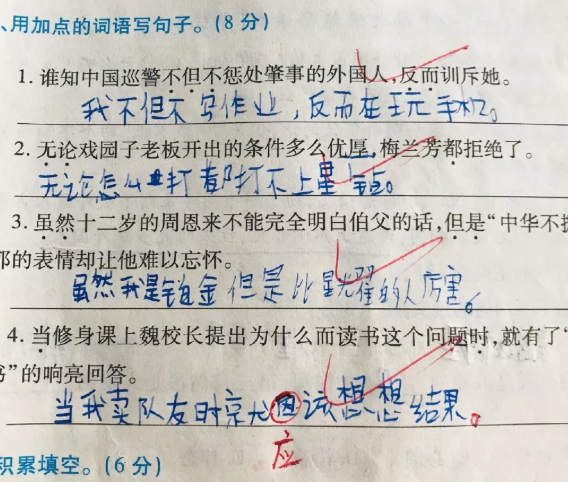 、用加点的词语写句子。(8 分)
1. 谁知中国巡警不但不惩处肇事的外国人,反而训斥她。
我不但不写作业，反而在玩手机。
2. 无论戏园子老板开出的条件多么优厚,梅兰芳都拒绝了。
无论怎么打都打不上星钻。
3. 虽然十二岁的周恩来不能完全明白伯父的话,但是“中华不
的表情却让他难以忘怀。
虽然我是铂金但是比星光耀的人厉害。
4. 当修身课上魏校长提出为什么而读书这个问题时,就有了“
”的响亮回答。
当我卖队友时 该想想结果。
应
积累填空。(6 分)